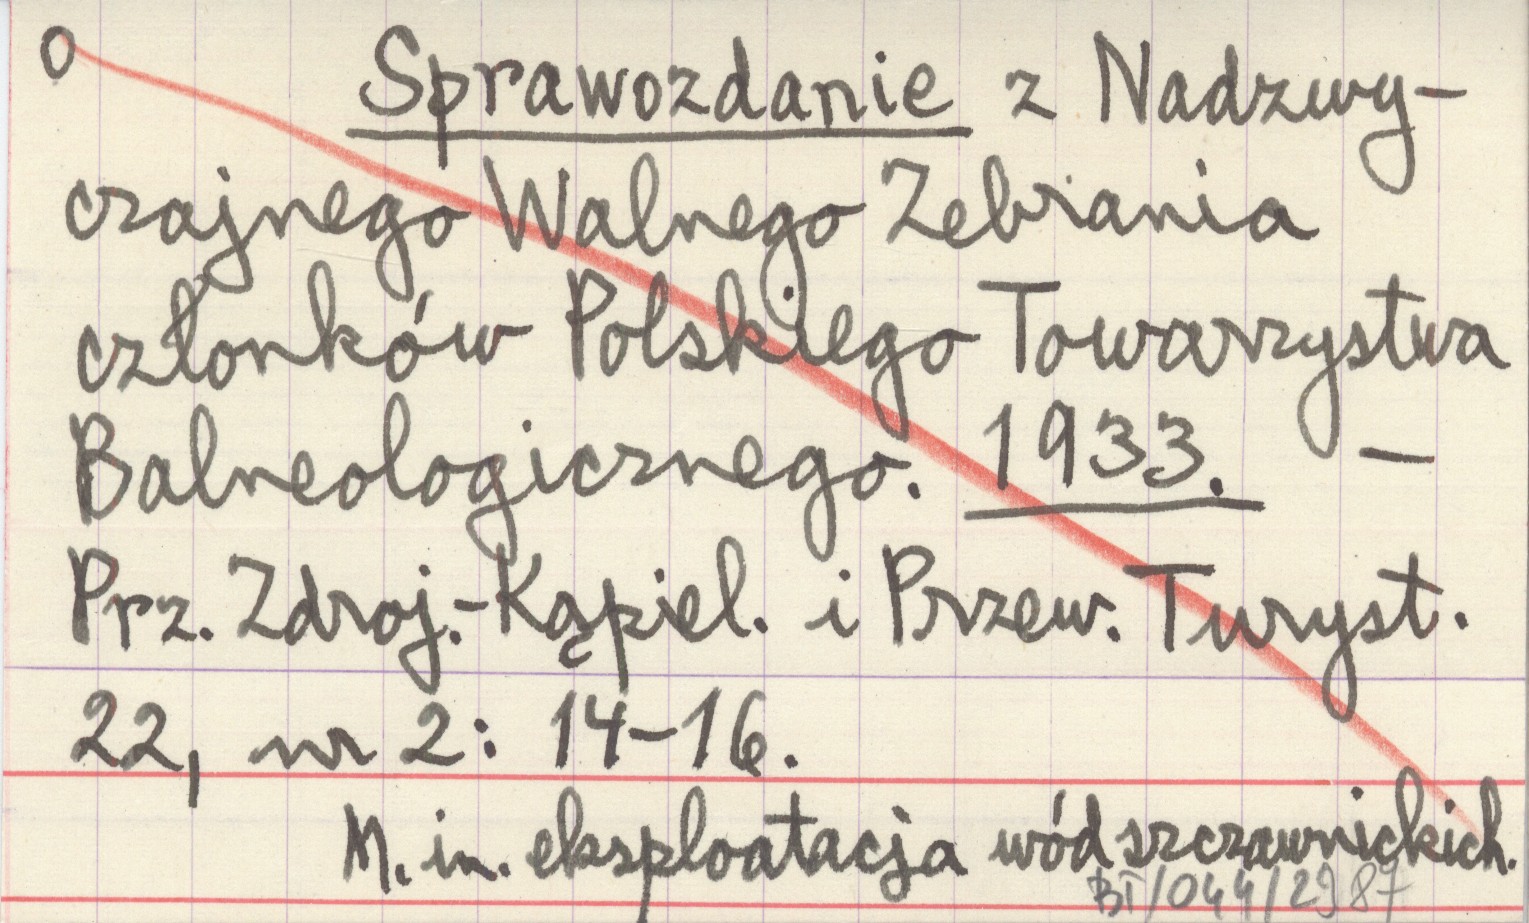 O
Sprawozdanie z Nadzwy-
czajnego Walnego Zebrania
członków Polskiego Towarzystwa
Balneologicznego. 1933. —
Prz. Zdroj.-Kąpiel. i Przew. Turyst.
22, nr 2: 14-16.
M. in. eksploatacja wód szczawnickich.
BT/044/2987